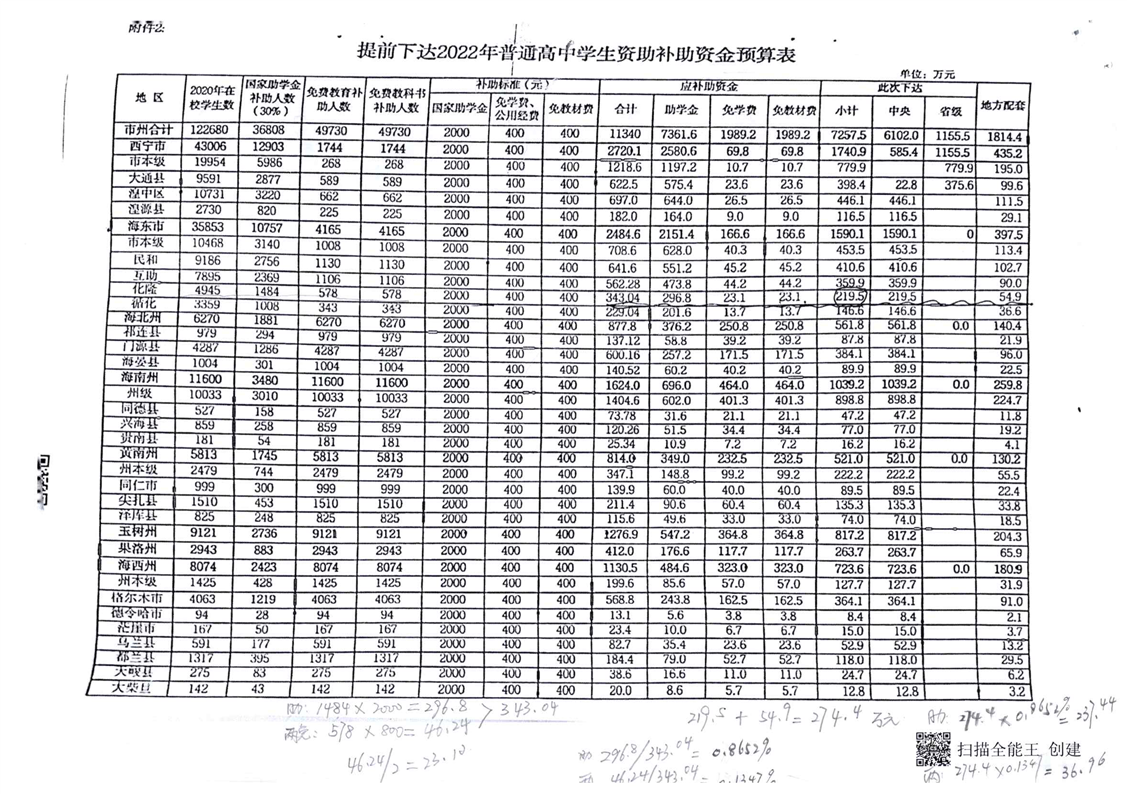 附件2:
提前下达2022年普通高中学生资助补助资金预算表
单位: 万元
地 区 2020年在校学生数 国家助学金补助人数(30%) 免费教育补助人数 免费教科书补助人数 补助标准(元) 应补助资金 此次下达 地方配套
国家助学金 免学费、公用经费 免教材费 合计 助学金 免学费 免教材费 小计 中央 省级
市州合计 122680 36808 49730 49730 2000 400 400 11340 7361.6 1989.2 1989.2 7257.5 6102.0 1155.5 1814.4
西宁市 43006 12903 1744 1744 2000 400 400 2720.1 2580.6 69.8 69.8 1740.9 585.4 1155.5 435.2
市本级 19954 5986 268 268 2000 400 400 1218.6 1197.2 10.7 10.7 779.9 779.9 195.0
大通县 9591 2877 589 589 2000 400 400 622.5 575.4 23.6 23.6 398.4 22.8 375.6 99.6
湟中区 10731 3220 662 662 2000 400 400 697.0 644.0 26.5 26.5 446.1 446.1 111.5
湟源县 2730 820 225 225 2000 400 400 182.0 164.0 9.0 9.0 116.5 116.5 29.1
海东市 35853 10757 4165 4165 2000 400 400 2484.6 2151.4 166.6 166.6 1590.1 1590.1 0 397.5
市本级 10468 3140 1008 1008 2000 400 400 708.6 628.0 40.3 40.3 453.5 453.5 113.4
民和 9186 2756 1130 1130 2000 400 400 641.6 551.2 45.2 45.2 410.6 410.6 102.7
互助 7895 2369 1106 1106 2000 400 400 562.28 473.8 44.2 44.2 359.9 359.9 90.0
化隆 4945 1484 578 578 2000 400 400 343.04 296.8 23.1 23.1 219.5 219.5 54.9
循化 3359 1008 343 343 2000 400 400 229.04 201.6 13.7 13.7 146.6 146.6 36.6
海北州 6270 1881 6270 6270 2000 400 400 877.8 376.2 250.8 250.8 561.8 561.8 0.0 140.4
祁连县 979 294 979 979 2000 400 400 137.12 58.8 39.2 39.2 87.8 87.8 21.9
门源县 4287 1286 4287 4287 2000 400 400 600.16 257.2 171.5 171.5 384.1 384.1 96.0
海晏县 1004 301 1004 1004 2000 400 400 140.52 60.2 40.2 40.2 89.9 89.9 22.5
海南州 11600 3480 11600 11600 2000 400 400 1624.0 696.0 464.0 464.0 1039.2 1039.2 0.0 259.8
州级 10033 3010 10033 10033 2000 400 400 1404.6 602.0 401.3 401.3 898.8 898.8 224.7
同德县 527 158 527 527 2000 400 400 73.78 31.6 21.1 21.1 47.2 47.2 11.8
兴海县 859 258 859 859 2000 400 400 120.26 51.5 34.4 34.4 77.0 77.0 19.2
贵南县 181 54 181 181 2000 400 400 25.34 10.9 7.2 7.2 16.2 16.2 4.1
黄南州 5813 1745 5813 5813 2000 400 400 814.0 349.0 232.5 232.5 521.0 521.0 0.0 130.2
州本级 2479 744 2479 2479 2000 400 400 347.1 148.8 99.2 99.2 222.2 222.2 55.5
同仁市 999 300 999 999 2000 400 400 139.9 60.0 40.0 40.0 89.5 89.5 22.4
尖扎县 1510 453 1510 1510 2000 400 400 211.4 90.6 60.4 60.4 135.3 135.3 33.8
泽库县 825 248 825 825 2000 400 400 115.6 49.6 33.0 33.0 74.0 74.0 18.5
玉树州 9121 2736 9121 9121 2000 400 400 1276.9 547.2 364.8 364.8 817.2 817.2 204.3
果洛州 2943 883 2943 2943 2000 400 400 412.0 176.6 117.7 117.7 263.7 263.7 65.9
海西州 8074 2423 8074 8074 2000 400 400 1130.5 484.6 323.0 323.0 723.6 723.6 0.0 180.9
州本级 1425 428 1425 1425 2000 400 400 199.6 85.6 57.0 57.0 127.7 127.7 31.9
格尔木市 4063 1219 4063 4063 2000 400 400 568.8 243.8 162.5 162.5 364.1 364.1 91.0
德令哈市 94 28 94 94 2000 400 400 13.1 5.6 3.8 3.8 8.4 8.4 2.1
茫崖市 167 50 167 167 2000 400 400 23.4 10.0 6.7 6.7 15.0 15.0 3.7
乌兰县 591 177 591 591 2000 400 400 82.7 35.4 23.6 23.6 52.9 52.9 13.2
都兰县 1317 395 1317 1317 2000 400 400 184.4 79.0 52.7 52.7 118.0 118.0 29.5
天峻县 275 83 275 275 2000 400 400 38.6 16.6 11.0 11.0 24.7 24.7 6.2
大柴旦 142 43 142 142 2000 400 400 20.0 8.6 5.7 5.7 12.8 12.8 3.2
助: 1484×2000=296.8 > 343.04
两免: 578×800=46.24
46.24/2=23.10
219.5+54.9=274.4 万元
助: 274.4×0.8652%=237.44
助 296.8/343.04=0.8652%
两 46.24/343.04=0.1347%
两: 274.4×0.1347=36.96
扫描全能王 创建